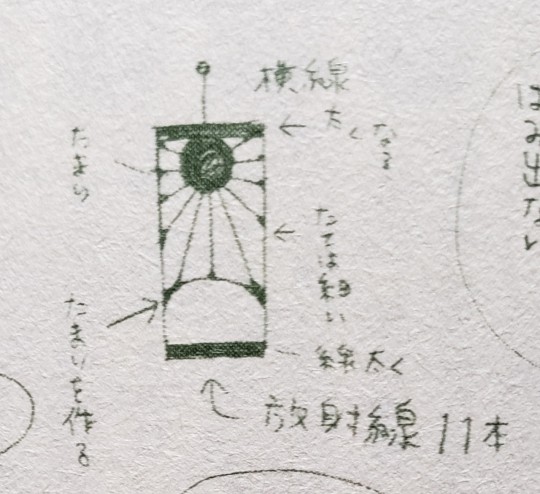 横線
太くなる
たまり
たては細い
たまりを作る
線太く
放射線11本
はみ出ない